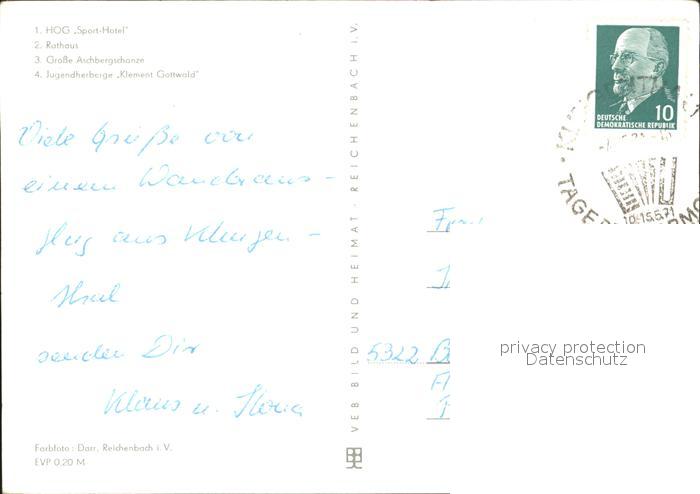 1. HOG „Sport-Hotel"
2. Rathaus
3. Große Aschbergschanze
4. Jugendherberge „Klement Gottwald"
Viele Grüße von
einem Wanderaus-
flug aus Klingen-
thal
senden Dir
Klaus u. Ilona
Farbfoto: Darr, Reichenbach i. V.
EVP 0,20 M
VEB BILD UND HEIMAT · REICHENBACH i. V.
10
DEUTSCHE
DEMOKRATISCHE REPUBLIK
TAGE
10.-15.5.71
5322 B
privacy protection
Datenschutz